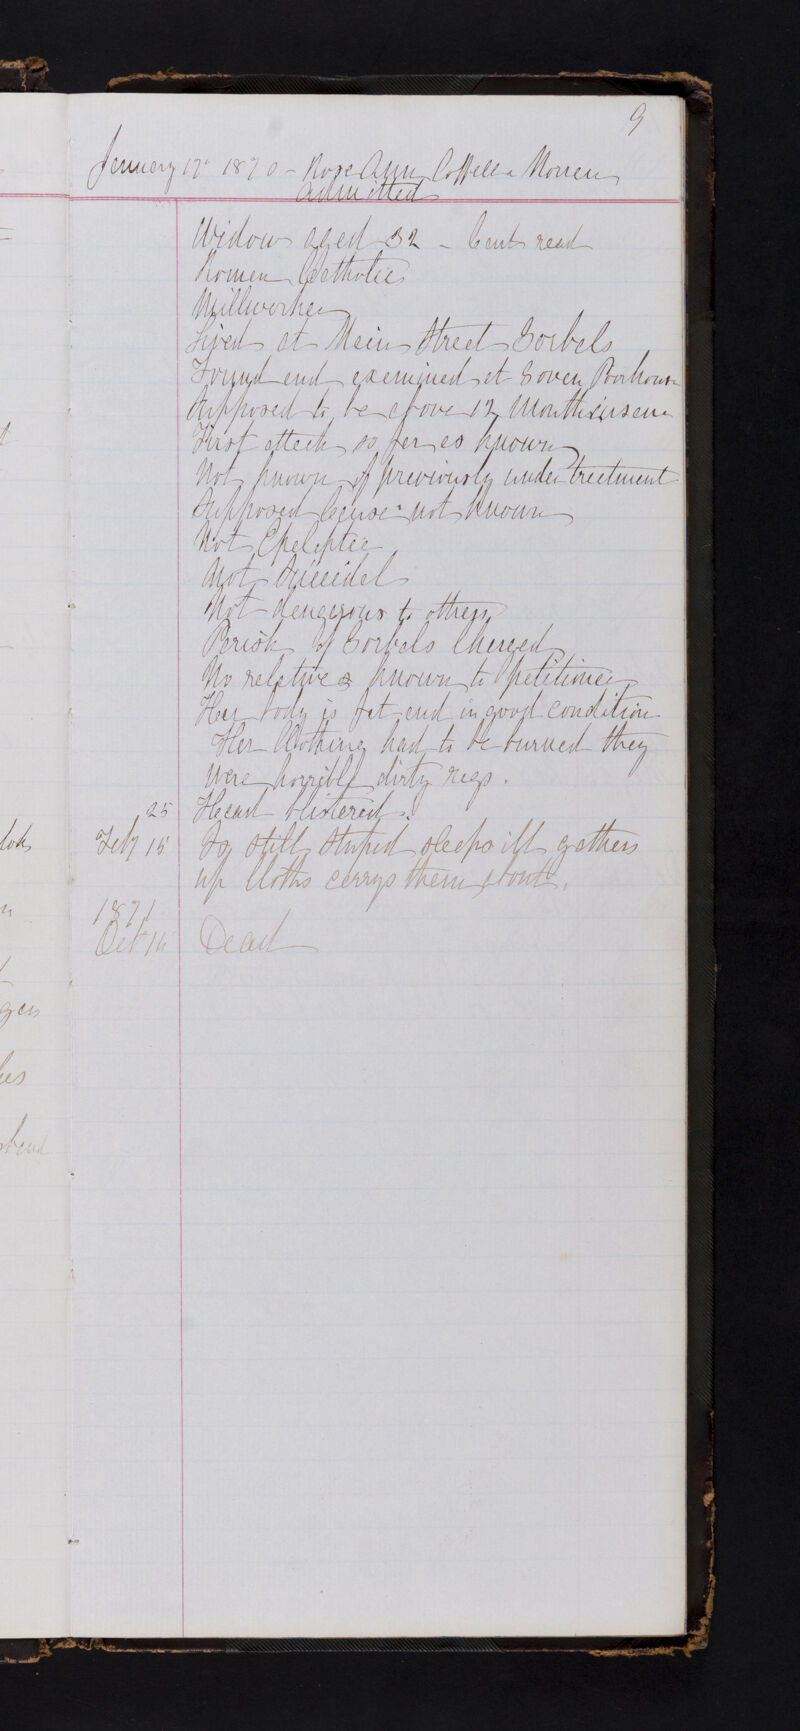 9
January 17th 1870 - Rose Ann or Morren
admitted
Widow aged 32 - Cant read
Roman Catholic
Millworker
Lived at Main Street Gorbels
Found and examined at Govan Poorhouse
Supposed to be above 12 Months insane
First attack so far as known
Not known if previously under treatment
Supposed Cause not known
Not Epeleptic
Not Suicidal
Not dangerous to others
Parish of Gorbels Charged
No relatives known to petitioner
Her body is fat and in good condition
Her Clothing had to be burned they
were horrible dirty rags.
25 Head blistered.
Feby 15 Is still stuped sleeps ill gathers
up Cloths carrys them about.
1871
Oct 14 Dead